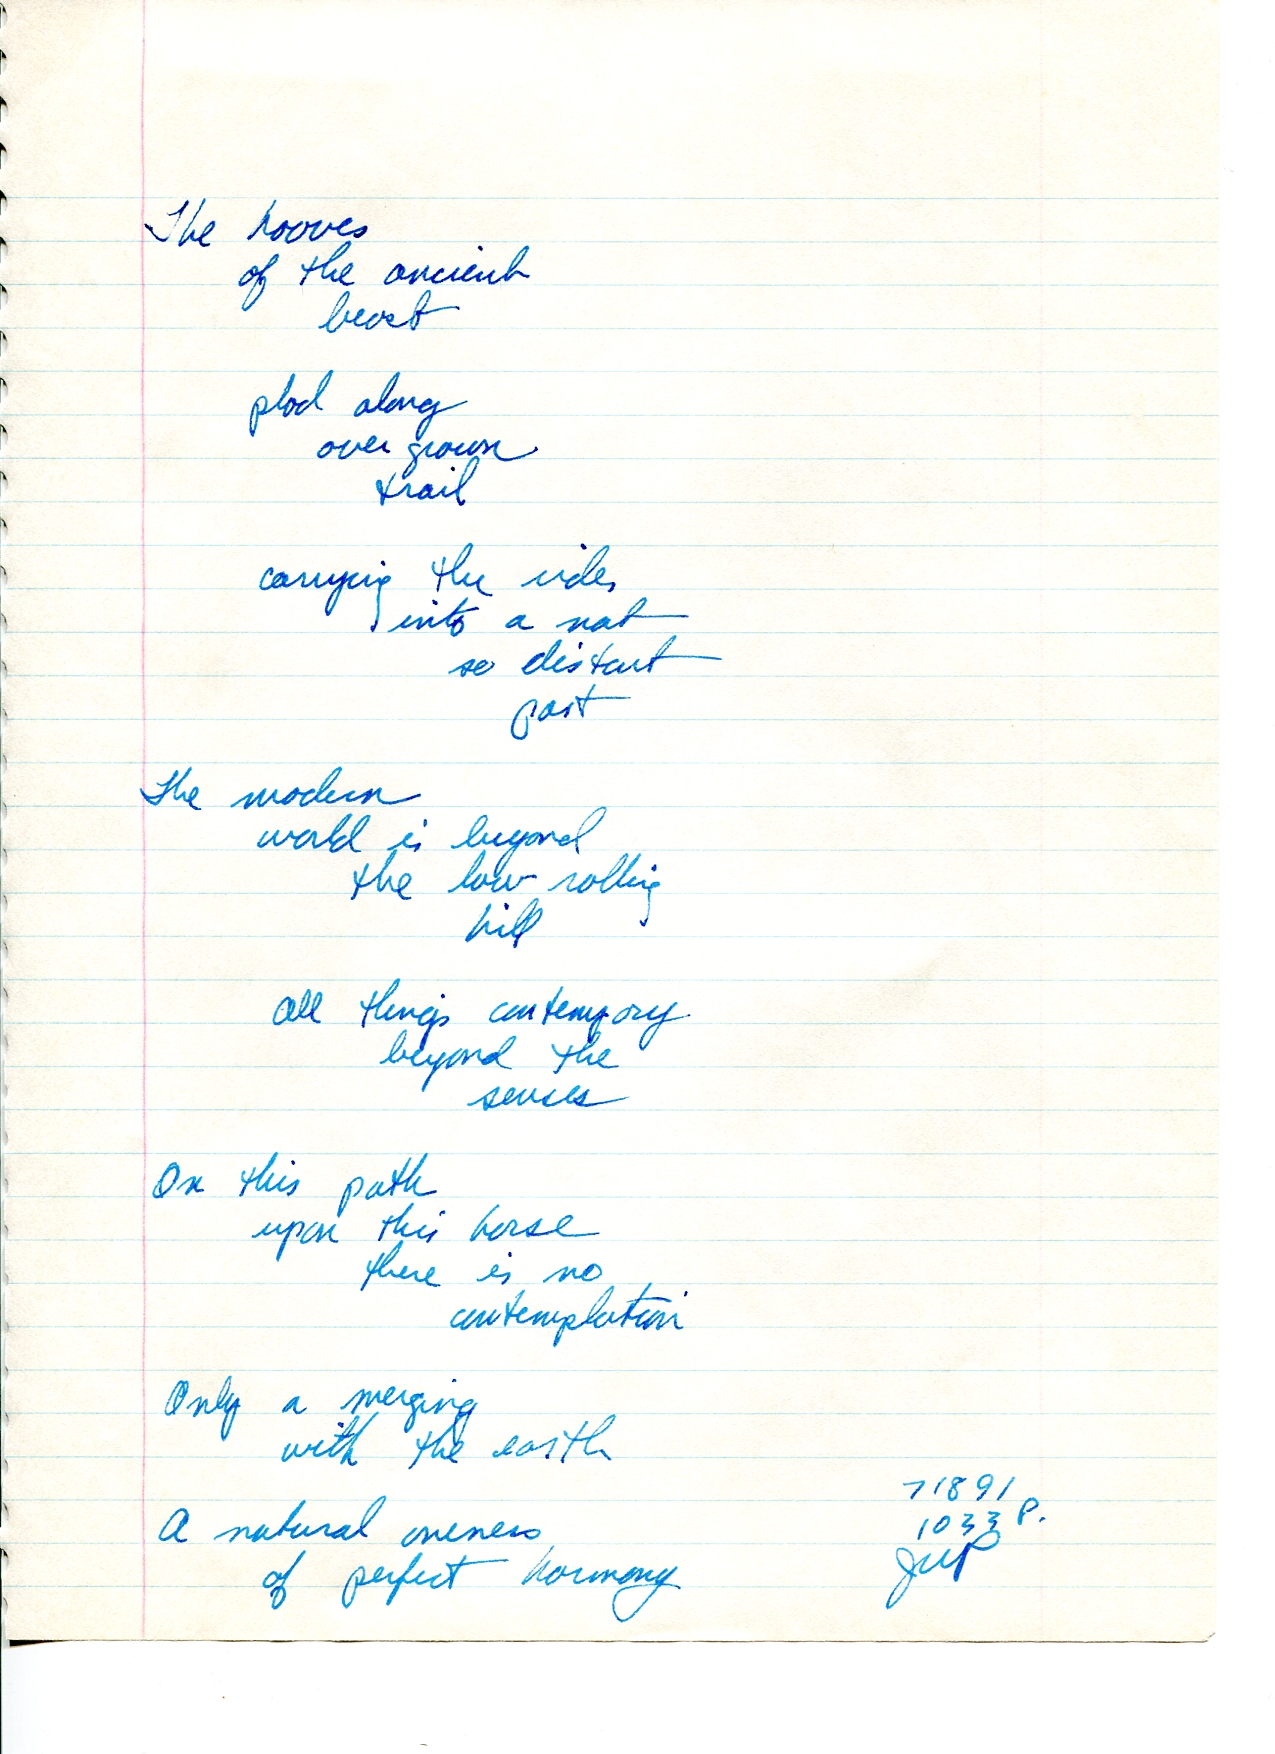 The hooves
of the ancient
beast
plod along
over grown
trail
carrying the rider
into a not
so distant
past
The modern
world is beyond
the low rolling
hill
all things contempory
beyond the
senses
On this path
upon this horse
there is no
contemplation
Only a merging
with the earth
A natural oneness
of perfect harmony
71891
1033 P.
JWP